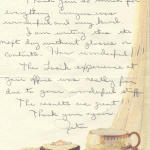 Thank you so much for
everything - everyone was
wonderful and very kind.
I am writing this the
next day without glasses or
contacts. How wonderful!
The Lasik experience at
your office was really fun
due to your wonderful staff.
The results are great!
Thank you again